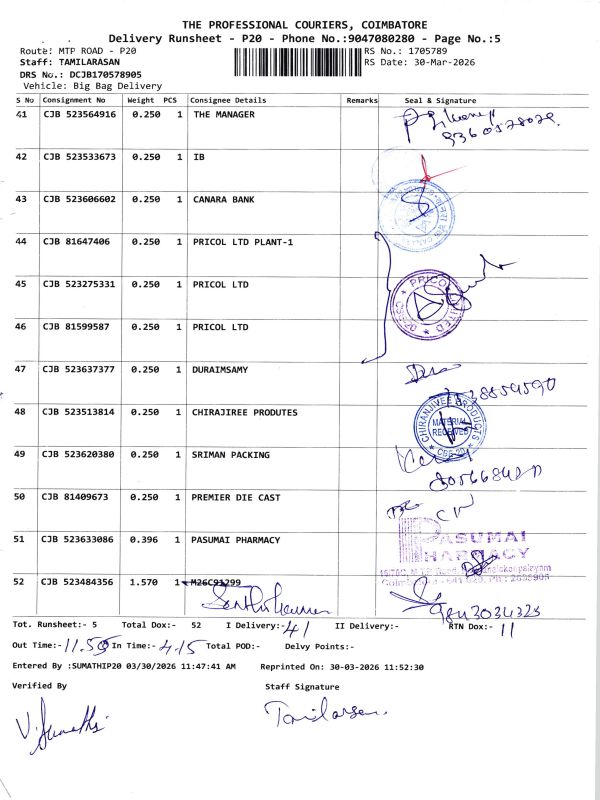 THE PROFESSIONAL COURIERS, COIMBATORE
Delivery Runsheet - P20 - Phone No.:9047080280 - Page No.:5
Route: MTP ROAD - P20
RS No.: 1705789
Staff: TAMILARASAN
RS Date: 30-Mar-2026
DRS No.: DCJB170578905
Vehicle: Big Bag Delivery
S No Consignment No Weight PCS Consignee Details Remarks Seal & Signature
41 CJB 523564916 0.250 1 THE MANAGER
9360578029
42 CJB 523533673 0.250 1 IB
43 CJB 523606602 0.250 1 CANARA BANK
44 CJB 81647406 0.250 1 PRICOL LTD PLANT-1
45 CJB 523275331 0.250 1 PRICOL LTD
PRICOL LIMITED
46 CJB 81599587 0.250 1 PRICOL LTD
47 CJB 523637377 0.250 1 DURAIMSAMY
48 CJB 523513814 0.250 1 CHIRAJIREE PRODUTES
CHIRANJIVEE PRODUCTS
MATERIAL
RECEIVED
49 CJB 523620380 0.250 1 SRIMAN PACKING
50 CJB 81409673 0.250 1 PREMIER DIE CAST
51 CJB 523633086 0.396 1 PASUMAI PHARMACY
PASUMAI
PHARMACY
52 CJB 523484356 1.570 1 M26C91299
9843034325
Tot. Runsheet:- 5 Total Dox:- 52 I Delivery:- 41 II Delivery:- RTN Dox:- 11
Out Time:- 11.55 In Time:- 4.15 Total POD:- Delvy Points:-
Entered By :SUMATHIP20 03/30/2026 11:47:41 AM Reprinted On: 30-03-2026 11:52:30
Verified By Staff Signature
V. Sumathi Tamilarasan